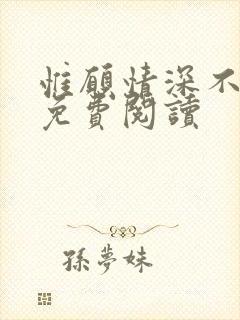 惟願情深不
免費閱讀
孫夢妹